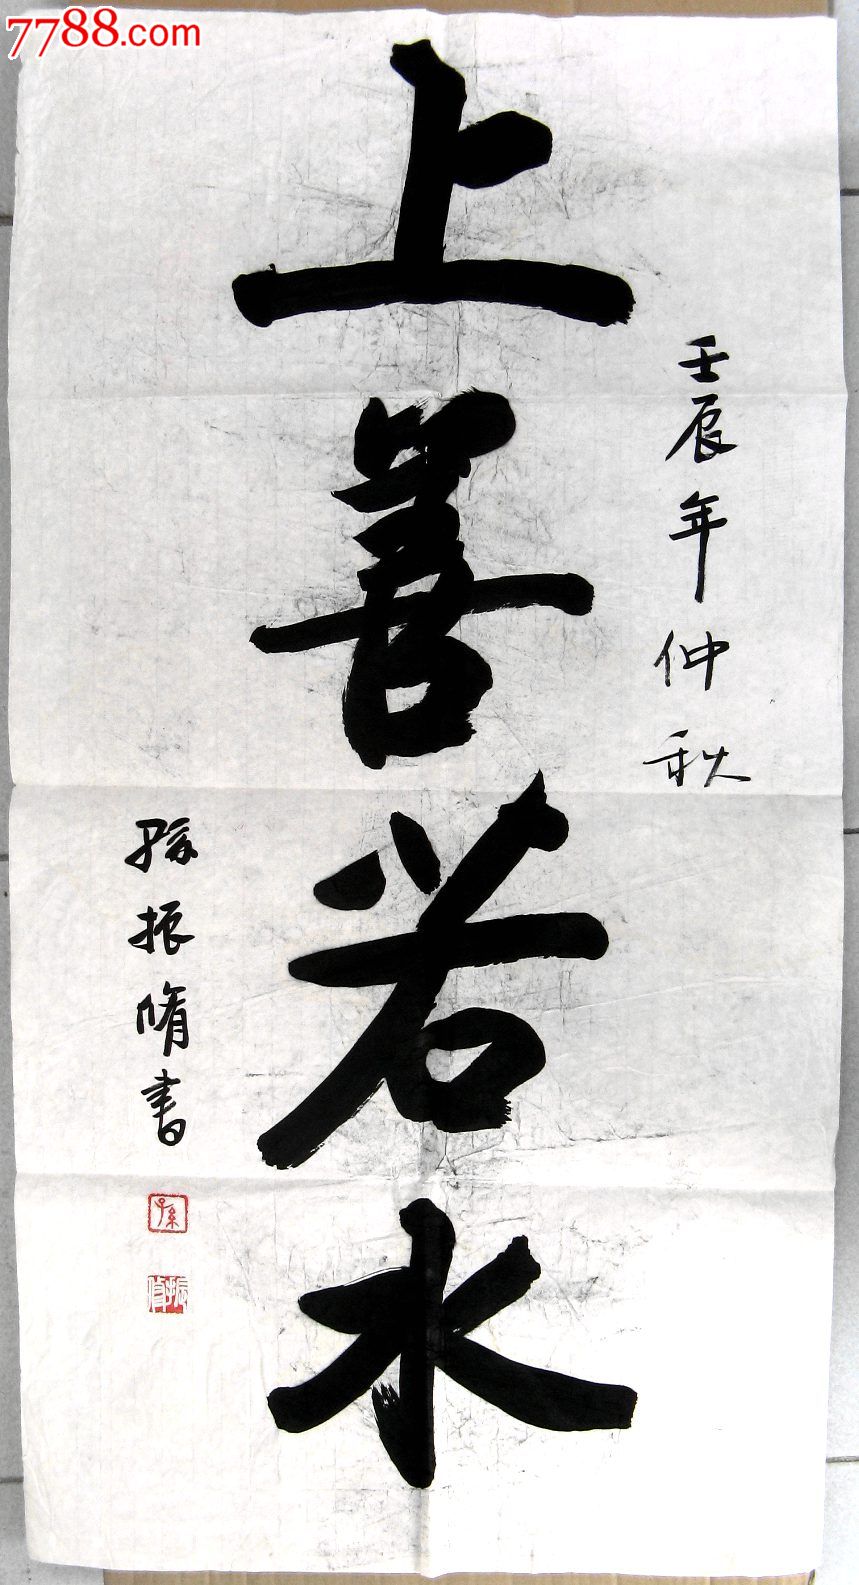 7788.com
壬辰年仲秋
上善若水
孫振脩書
孫
振脩